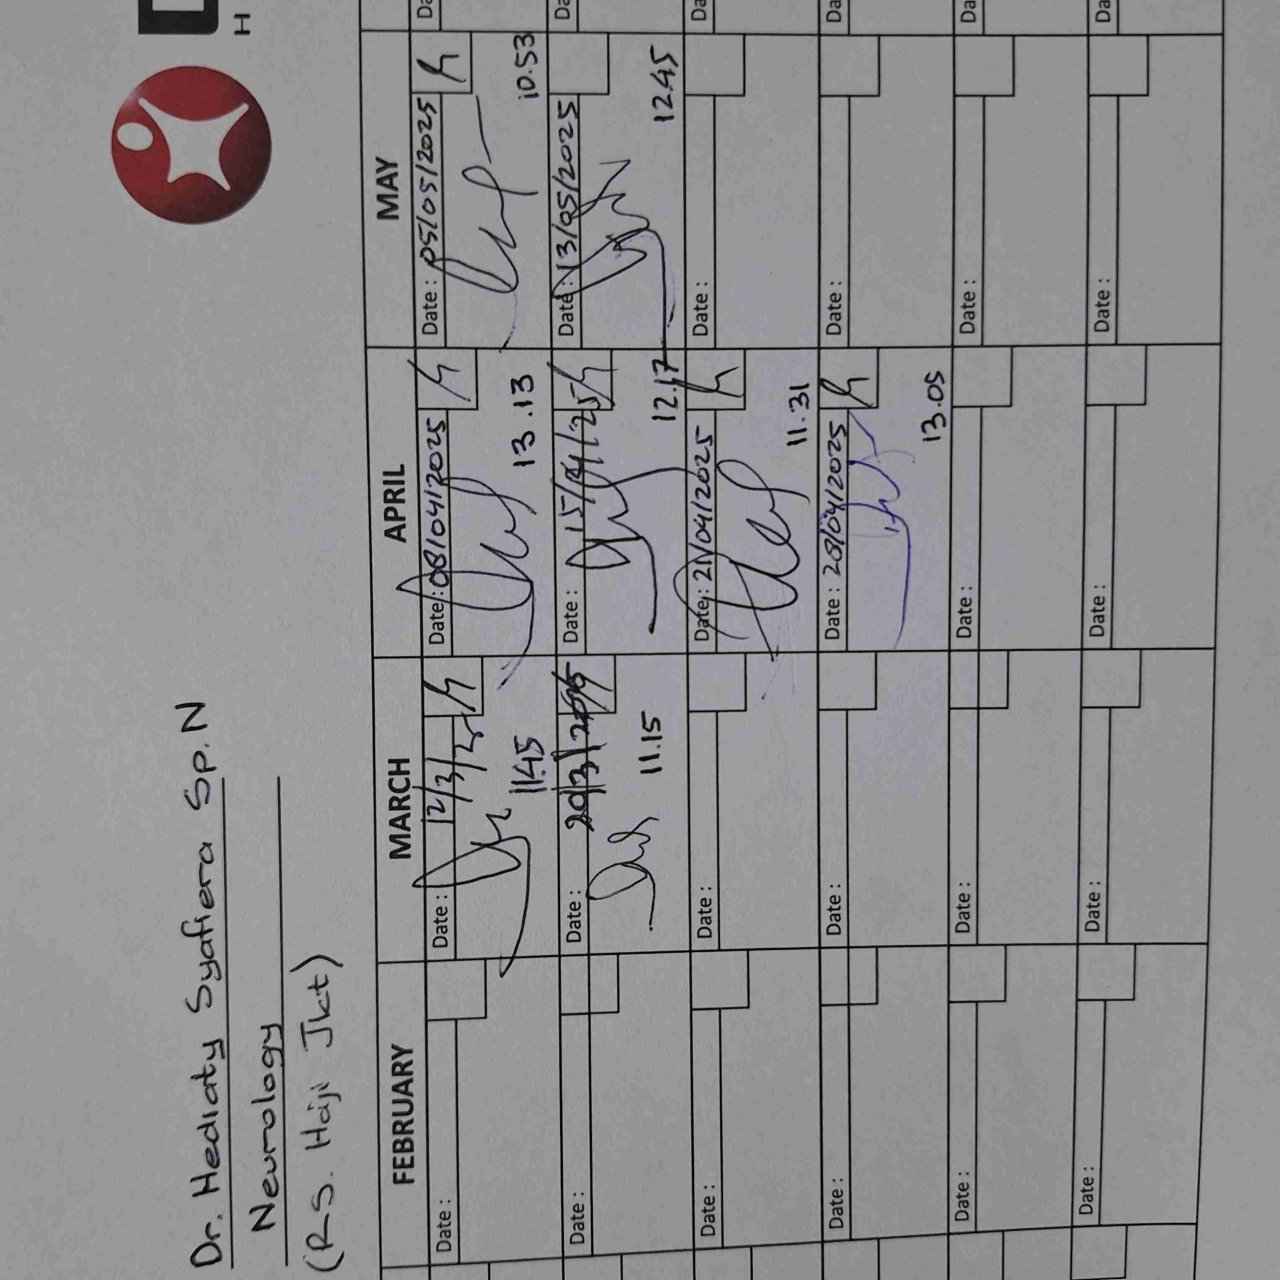 H
Dr. Hediaty Syafiera Sp.N
Neurology
(RS. Haji Jkt)
FEBRUARY MARCH APRIL MAY
Date : Date : 12/3/25 Date : 08/04/2025 Date : 05/05/2025 Da
11.45 13.13 10.53
Date : Date : 20/3/2025 Date : 15/04/25 Date : 13/05/2025 Da
11.15 12.17 12.45
Date : Date : Date : 21/04/2025 Date : Da
11.31
Date : Date : Date : 28/04/2025 Date : Da
13.05
Date : Date : Date : Date : Da
Date : Date : Date : Date : Da